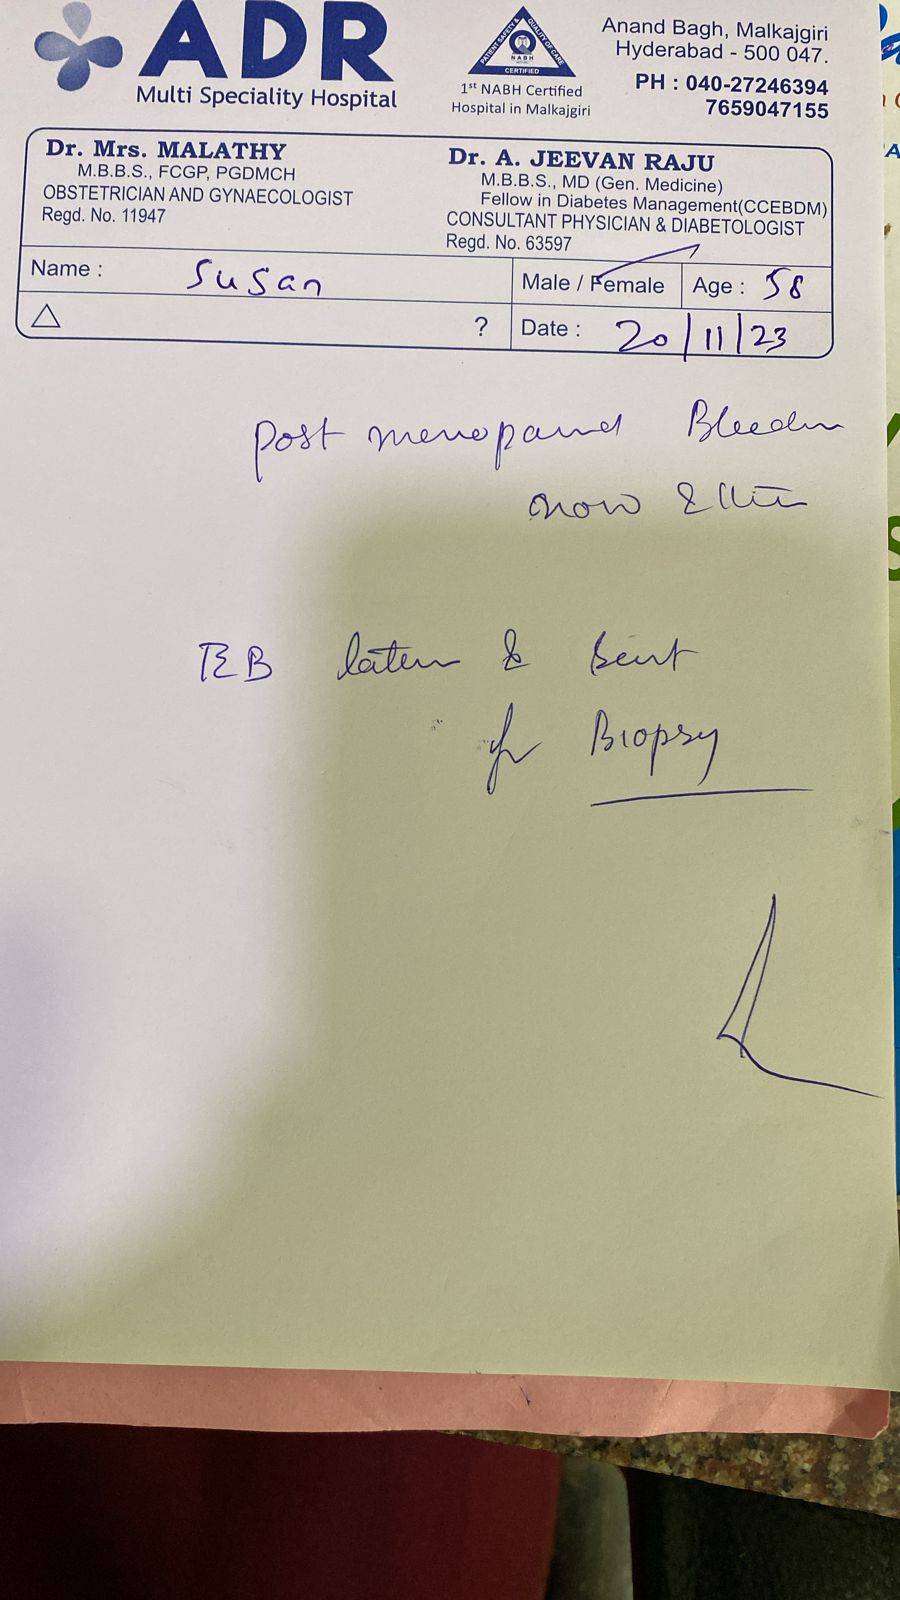 ADR
Multi Speciality Hospital
PATIENT SAFETY & QUALITY OF CARE
NABH
CERTIFIED
1st NABH Certified
Hospital in Malkajgiri
Anand Bagh, Malkajgiri
Hyderabad - 500 047.
PH : 040-27246394
7659047155
Dr. Mrs. MALATHY
M.B.B.S., FCGP, PGDMCH
OBSTETRICIAN AND GYNAECOLOGIST
Regd. No. 11947
Dr. A. JEEVAN RAJU
M.B.B.S., MD (Gen. Medicine)
Fellow in Diabetes Management(CCEBDM)
CONSULTANT PHYSICIAN & DIABETOLOGIST
Regd. No. 63597
Name : Susan
Male / Female
Age : 58
△ ?
Date : 20/11/23
Post
now
EB &  sent
for Biopsy